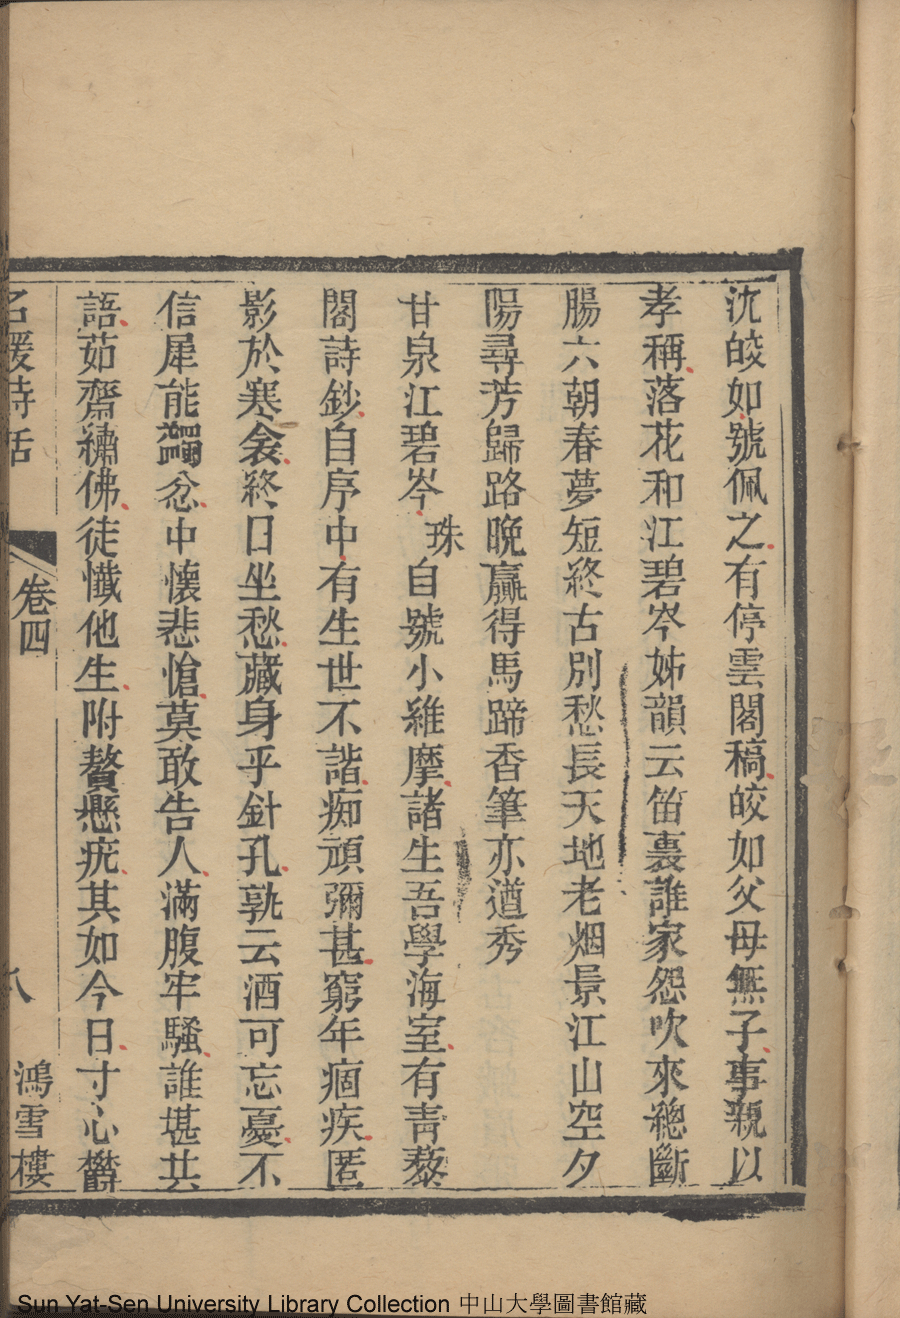 沈皎如號佩之有停雲閣稿皎如父母無子事親以
孝稱落花和江碧岑姊韻云笛裏誰家怨吹來總斷
腸六朝春夢短終古別愁長天地老烟景江山空夕
陽尋芳歸路晚贏得馬蹄香筆亦遒秀
甘泉江碧岑珠自號小維摩諸生吾學海室有青藜
閣詩鈔自序中有生世不諧痴頑彌甚窮年痼疾匿
影於寒衾終日坐愁藏身乎針孔孰云酒可忘憂不
信犀能蠲忿中懷悲愴莫敢告人滿腹牢騷誰堪共
語茹齋繡佛徒懺他生附贅懸疣其如今日寸心欝
名媛詩話 卷四 八 鴻雪樓
Sun Yat-Sen University Library Collection 中山大學圖書館藏